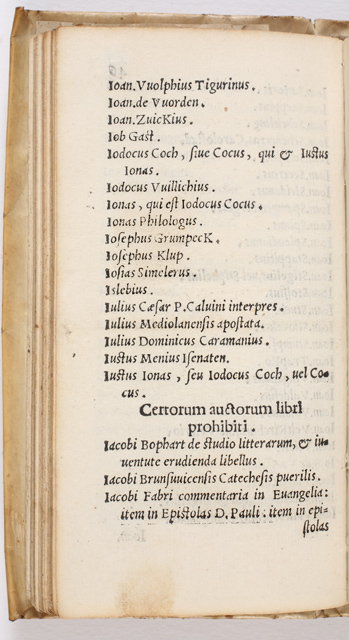 Ioan. Vuolphius Tigurinus.
Ioan. de Vuorden.
Ioan. ZuicKius.
Iob Gast.
Iodocus Coch, siue Cocus, qui & Iustus
Ionas.
Iodocus Vuillichius.
Ionas, qui est Iodocus Cocus.
Ionas Philologus.
Iosephus GrunpecK.
Iosephus Klup.
Iosias Simelerus.
Islebius.
Iulius Cæsar P. Caluini interpres.
Iulius Mediolanensis apostata.
Iulius Dominicus Caramanius.
Iustus Menius Isenaten.
Iustus Ionas, seu Iodocus Coch, uel Co-
cus.
Certorum auctorum libri
prohibiti.
Iacobi Bophart de studio litterarum, & iu-
uentute erudienda libellus.
Iacobi Brunsuuicensis Catechesis puerilis.
Iacobi Fabri commentaria in Euangelia:
item in Epistolas D. Pauli: item in epi-
stolas